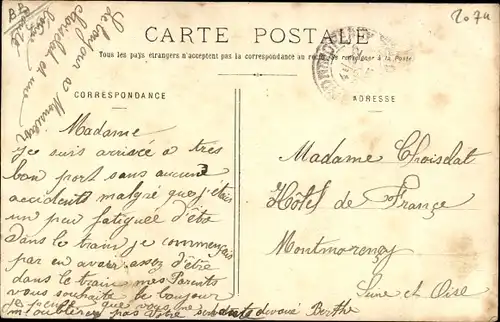 CARTE POSTALE
Tous les pays étrangers n'acceptent pas la correspondance au recto, se renseigner à la Poste
CORRESPONDANCE
ADRESSE
2074
Le bonjour a Monsieur
Choisdat et une
Madame
je suis arrivée a très
bon port sans aucun
accident malgré que j'étais
un peu fatiguée d'êtr
dans le train je commençais
par en avoir assez d'être
dans le train mes Parents
vous souhaite le bonjour
je pense que vous ne
m'oublierez pas votre servante devoué Berthe
Madame Choisdat
Hôtel de France
Montmorency
Seine et Oise